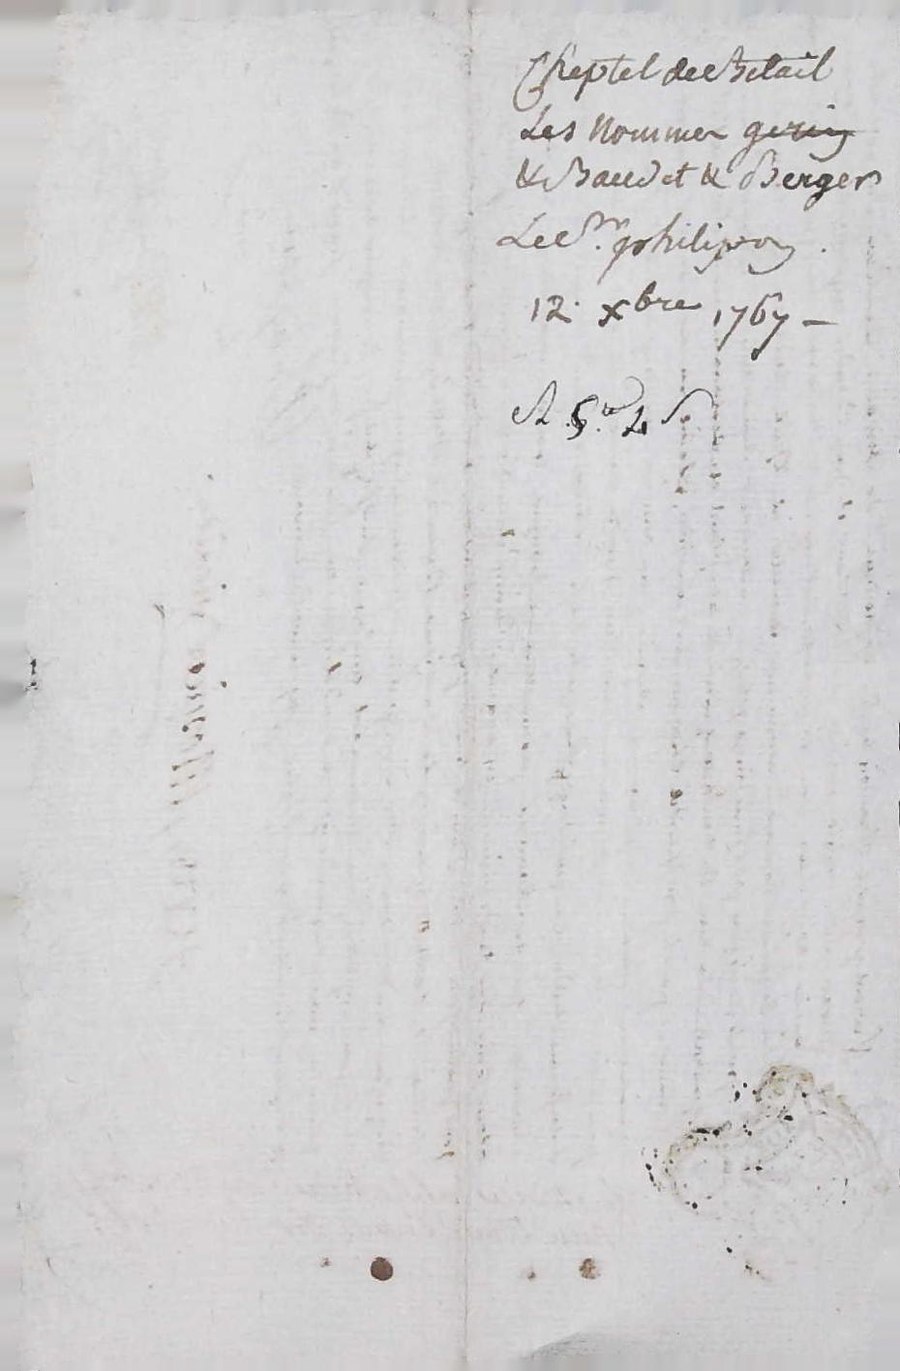 Cheptel de Betail
Les Nommer gerin
& Baudet & Berger
Le Sr. philipon
12. xbre 1767 –